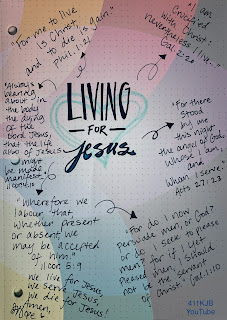 "For me to live
is Christ,
and to die is gain."
Phil. 1:21
"I am
Crucified
with Christ:
nevertheless I live..."
Gal. 2:20
"Always
bearing
about in
the body
the dying
of the
Lord Jesus,
that the life
also of Jesus
might
be made
manifest..."
II Cor. 4:10
LIVING
FOR
Jesus
"For there
stood
by me
this night
the angel of God,
Whose I am,
and
Whom I serve."
Acts 27:23
"Wherefore we
labour, that,
whether present
or absent, we
may be accepted
of him."
II Cor. 5:9
we live for Jesus,
we serve Jesus,
we die for Jesus!
"For do I now
persuade men, or God?
or do I seek to please
men? for if I yet
pleased men, I should
not be the servant of
Christ." Gal. 1:10
411KJB
YouTube